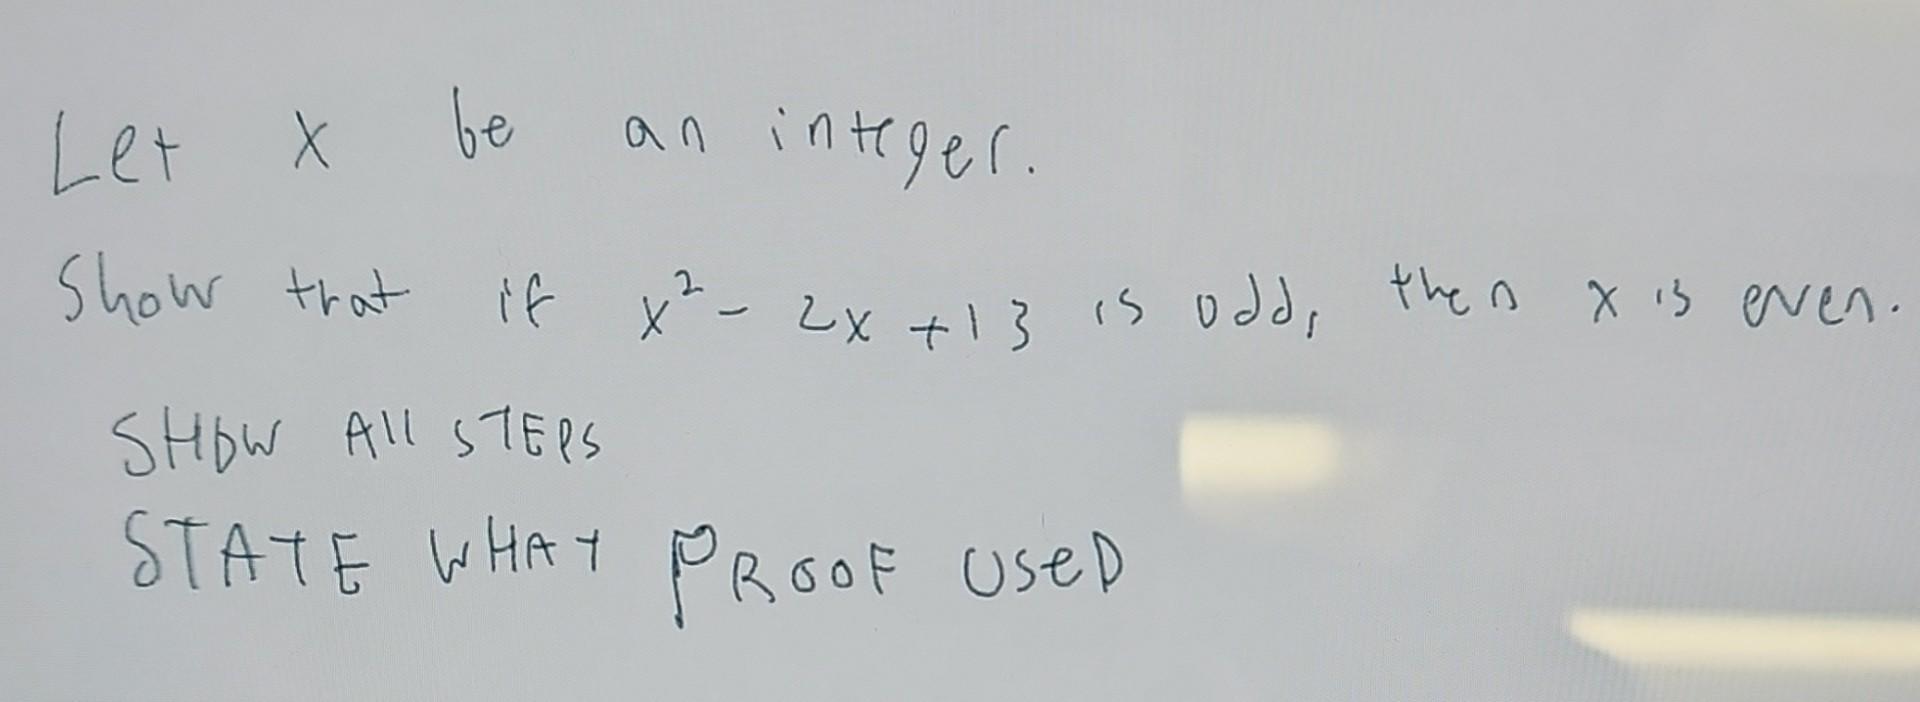 Let x be an integer.
Show that if x² - 2x + 13 is odd, then x is even.
SHOW All STEPS
STATE WHAT PROOF USED